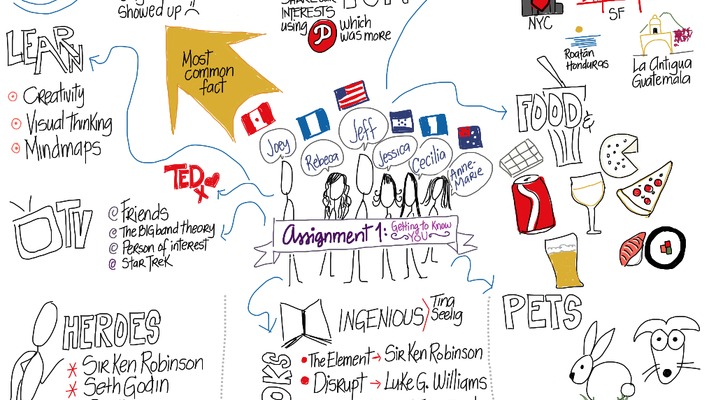 Showed up
INTERESTS
using
which
was more
NYC
SF
Roatán
Honduras
La Antigua
Guatemala
LEARN
Creativity
Visual thinking
Mindmaps
Most
common
fact
Joey
Rebeca
Jeff
Jessica
Cecilia
Anne-
Marie
FOOD &
TEDx
TV
Friends
The Big band theory
Person of interest
Star Trek
Assignment 1: Getting to Know
YOU
HEROES
Sir Ken Robinson
Seth Godin
INGENIOUS
Tina
Seelig
The Element → Sir Ken Robinson
Disrupt → Luke G. Williams
PETS